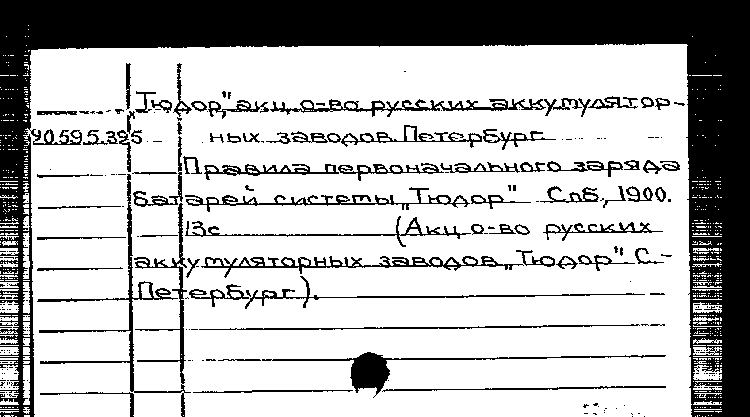 Тюдор," акц. о-во русских аккумулятор-
90.59.5.395 ных заводов Петербург.
Правила первоначального заряда
батарей системы „Тюдор". Спб, 1900.
13с (Акц. о-во русских
аккумуляторных заводов „Тюдор" С.-
Петербург).